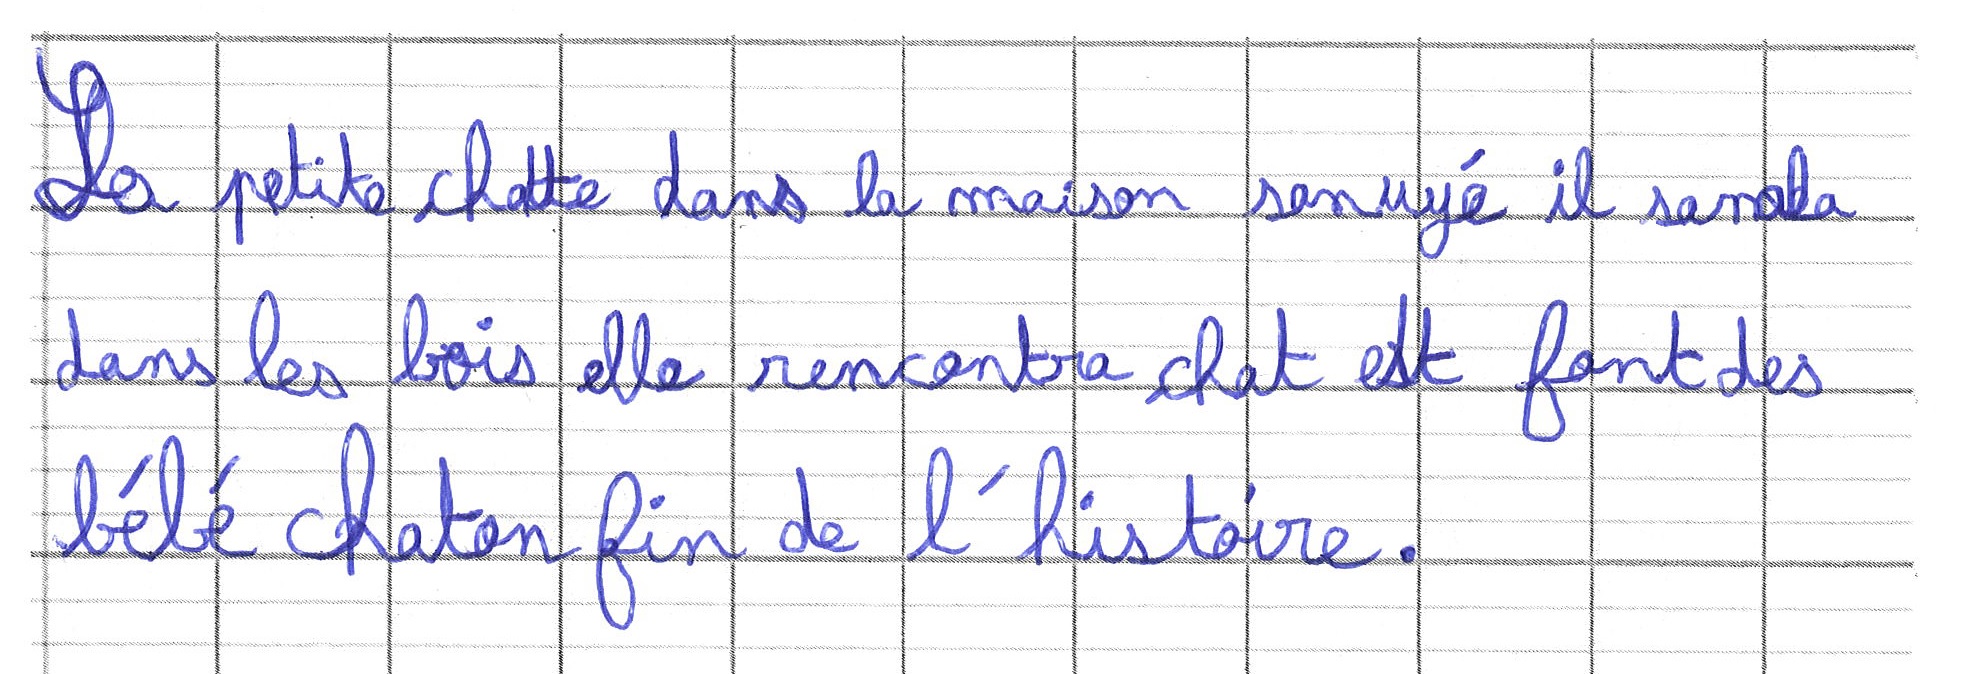 La petite chatte dans la maison sanuyé il sanala
dans les bois elle rencontra chat est font des
bébé chaton fin de l'histoire.